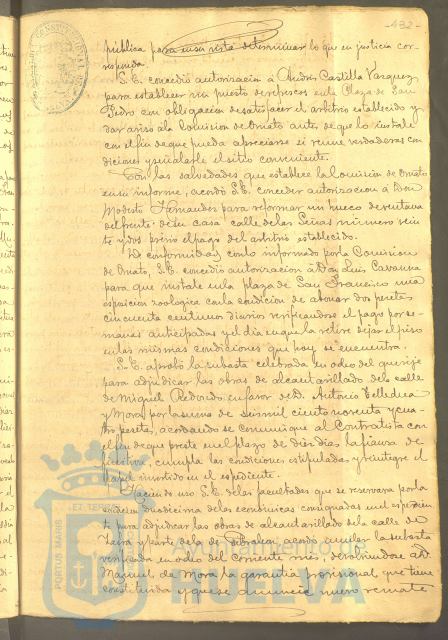 -482-
pública para en su vista determinar lo que en justicia cor-
responda.
S.E. concedió autorizacion á Andrés Castilla Vazquez
para establecer un puesto de refrescos en la Plaza de San
Pedro con obligacion de satisfacer el arbitrio establecido y
dar aviso á la Comision de Ornato antes de que lo instale
con el fin de que pueda apreciarse si reune verdaderas con
diciones y señalarle el sitio conveniente.
Con las salvedades que establece la Comision de Ornato
en su informe, acordó S.E. conceder autorizacion á Don
Modesto Fernandez para reformar un hueco de ventana
del frente de su casa calle de las Señas número vein
te y dos previo el pago del arbitrio establecido.
De conformidad con lo informado por la Comision
de Ornato, S.E. concedió autorizacion á Don Luis
para que instale en la plaza de San Francisco una
esposicion zoologica con la condicion de abonar dos pesetas
cincuenta centimos diarios verificandose el pago por se-
manas anticipadas y el dia en que la retire dejar el piso
en las mismas condiciones que hoy se encuentra.
S.E. aprobó la subasta celebrada en ocho del que rije
para adjudicar las obras de alcantarillado de la calle
de Miguel Redondo en favor de D. Antonio Telledea
y Mora, por la suma de seis mil ciento noventa y cua-
tro pesetas, acordando se comunique al Contratista con
el fin de que preste en el plazo de diez dias la fianza de-
finitiva, cumpla las condiciones estipuladas y reintegre el
papel invertido en el espediente.
Haciendo uso S.E. de las facultades que se reserva por la
condicion duodecima de las economicas consignadas en el espedien
te para adjudicar las obras de alcantarillado de la calle de
y parte de la de Gibraleon, acordó anular la subasta
verificada en ocho del corriente mes, devolviendose á D.
Manuel de Mora la garantia provisional que tiene
constituida y que se anuncie nuevo remate
PORTUS MARIS
ET TERRAE
Ayuntamiento de
HUELVA